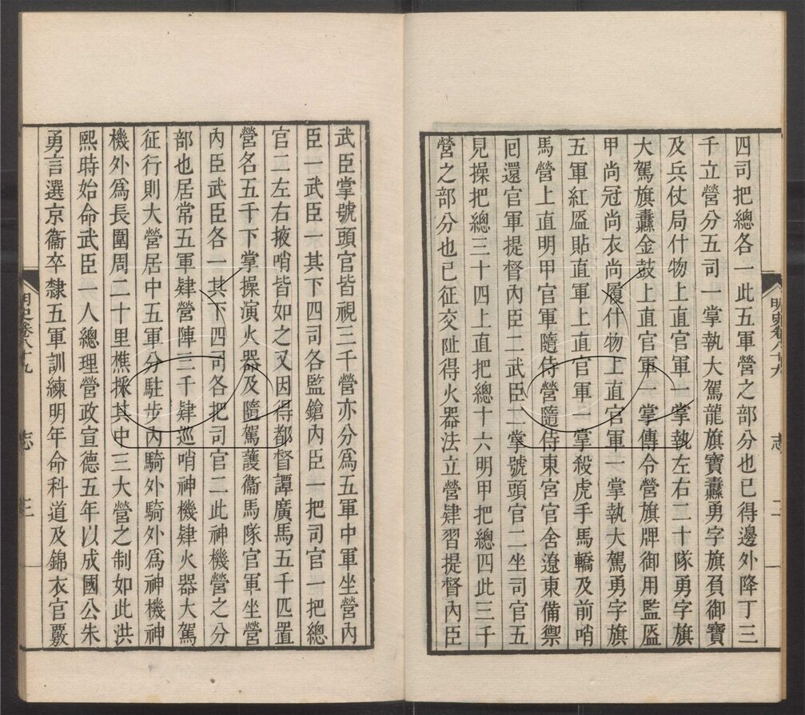 四司把總各一此五軍營之部分也已得邊外降丁三
千立營分五司一掌執大駕龍旗寶纛勇字旗負御寶
及兵仗局什物上直官軍一掌執左右二十隊勇字旗
大駕旗纛金鼓上直官軍一掌傳令營旗牌御用監盔
甲尚冠尚衣尚履什物上直官軍一掌執大駕勇字旗
五軍紅盔貼直軍上直官軍一掌殺虎手馬轎及前哨
馬營上直明甲官軍隨侍營隨侍東宮官舍遼東備禦
囘還官軍提督內臣二武臣二掌號頭官二坐司官五
見操把總三十四上直把總十六明甲把總四此三千
營之部分也已征交阯得火器法立營肄習提督內臣
明史卷八十九 志 二
武臣掌號頭官皆視三千營亦分爲五軍中軍坐營內
臣一武臣一其下四司各監鎗內臣一把司官一把總
官二左右掖哨皆如之又因得都督譚廣馬五千匹置
營名五千下掌操演火器及隨駕護衞馬隊官軍坐營
內臣武臣各一其下四司各把司官二此神機營之分
部也居常五軍肄營陣三千肄巡哨神機肄火器大駕
征行則大營居中五軍分駐步內騎外騎外爲神機神
機外爲長圍周二十里樵採其中三大營之制如此洪
熙時始命武臣一人總理營政宣德五年以成國公朱
勇言選京衞卒隸五軍訓練明年命科道及錦衣官覈
明史卷八十九 志 三